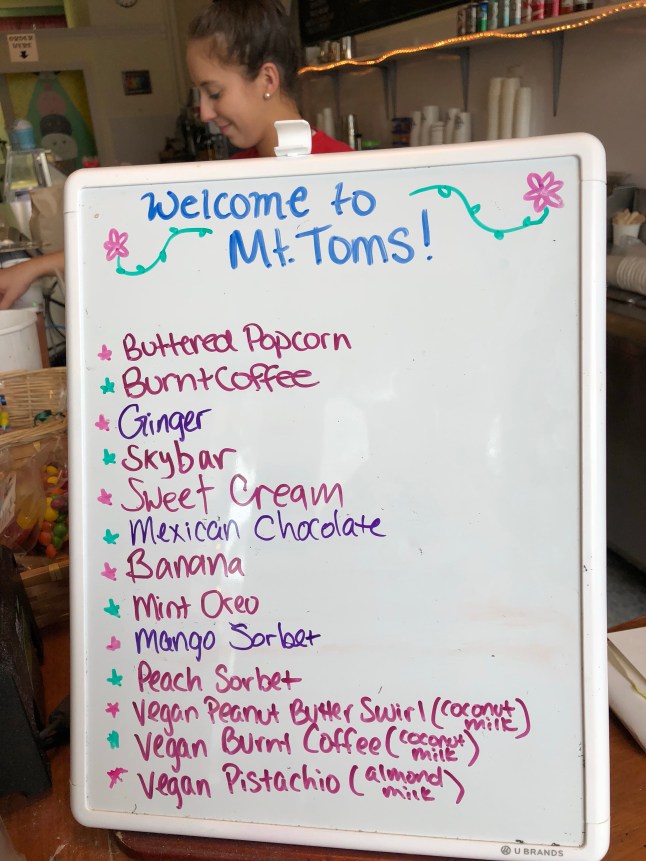 ORDER
HERE
Welcome to
Mt. Toms!
Buttered Popcorn
Burnt Coffee
Ginger
Skybar
Sweet Cream
Mexican Chocolate
Banana
Mint Oreo
Mango Sorbet
Peach Sorbet
Vegan Peanut Butter Swirl (coconut
milk)
Vegan Burnt Coffee (coconut
milk)
Vegan Pistachio (almond
milk)
U BRANDS